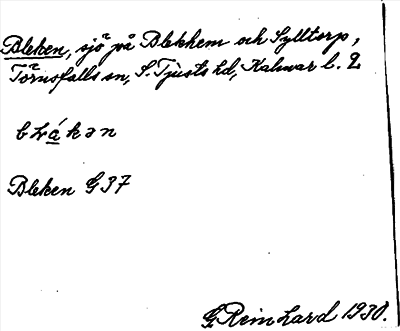 Bleken, sjö på Blekhem och Sylltorp,
Törnsfalls sn, S. Tjusts hd, Kalmar l.
Bleken G 37
G. Reinhard 1930.